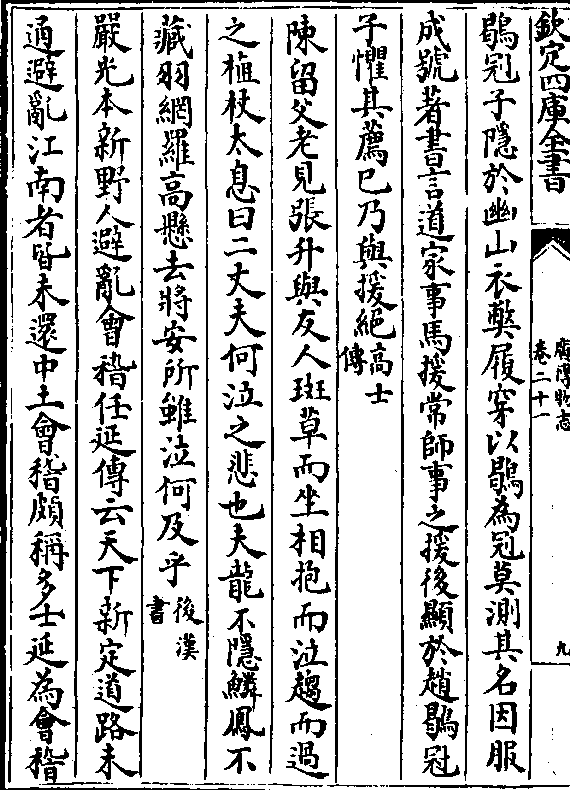 欽定四庫全書
廣博物志
卷二十一
九
鶡冠子隱於幽山衣弊履穿以鶡為冠莫測其名因服
成號著書言道家事馬援常師事之援後顯於趙鶡冠
子懼其薦已乃與援絕高士傳
陳留父老見張升與友人班草而坐相抱而泣趨而過
之植杖太息曰二丈夫何泣之悲也夫龍不隱鱗鳳不
藏羽網羅高懸去將安所雖泣何及乎後漢書
嚴光本新野人避亂會稽任延傳云天下新定道路未
通避亂江南者皆未還中土會稽頗稱多士延為會稽